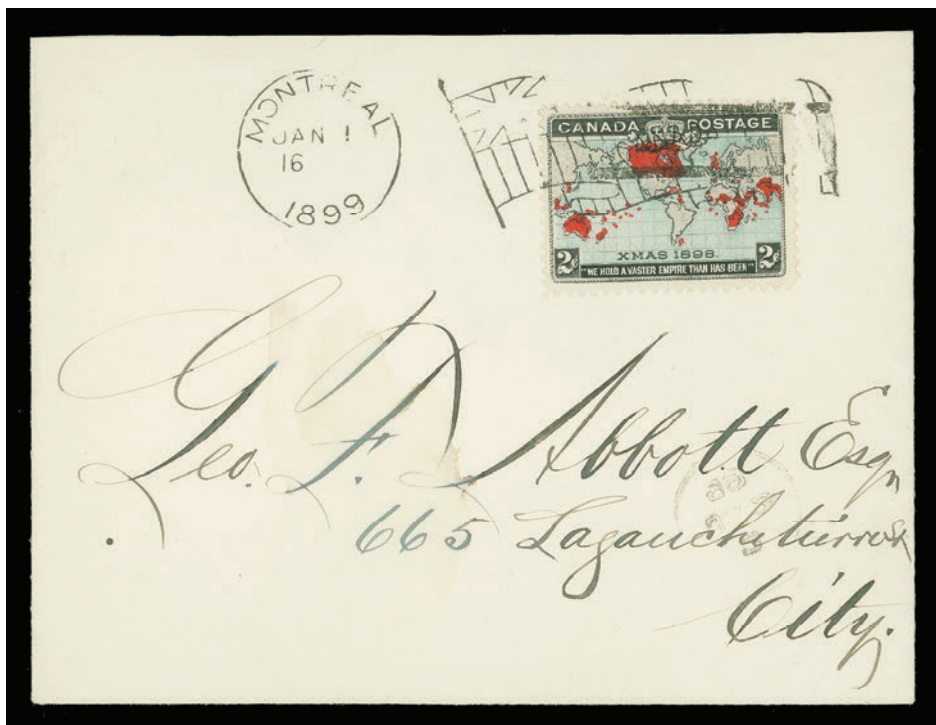 MONTREAL
JAN 1
16
1899
CANADA POSTAGE
XMAS 1898.
2¢ 2¢
"WE HOLD A VASTER EMPIRE THAN HAS BEEN"
Geo. F. Abbott Esq
665 Lagauchetierre St
City.